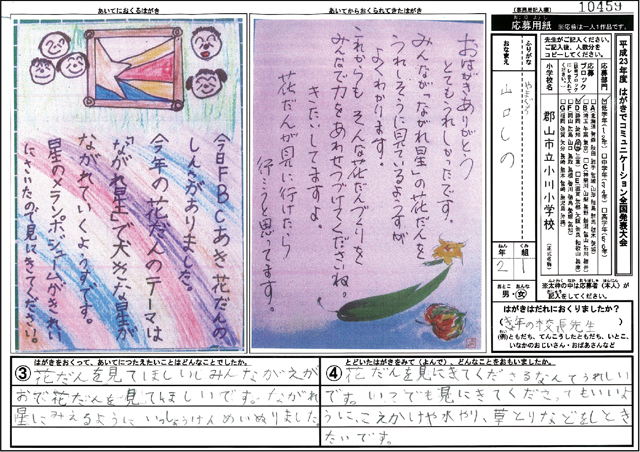 あいてにおくるはがき
今日FBCあき花だんの
しんさがありました。
今年の花だんのテーマは
「ながれ星」で大きな星が
ながれていくようすです。
星のメランポジュームがきれい
にさいたので見にきてください。
あいてからおくられてきたはがき
おはがきありがとう
とてもうれしかったです
みんなが"ながれ星"の花だんを
うれしそうに見ているようすが
よくわかります。
これからも そんな花だんづくりを
みんなで力をあわせつづけてくださいね。
きたいしてますよ
花だんが見に行けたら
行こうと思ってます。
(事務局記入欄)
10459
応募用紙 ※応募は一人1作品です。
平成23年度 はがきでコミュニケーション全国発表大会
先生がご記入ください。
ご記入後、人数分を
コピーしてください。
応募部門
応募ブロック
小学校名
郡山市立小川小学校
(正式名称)
ふりがな
おなまえ
山口しの
ねん 年 2
くみ 組 1
おとこ おんな
男・女
※太枠の中は応募者(本人)が
記入をしてください。
はがきはだれにおくりましたか?
(去年の校長先生)
(例)ともだち、てんこうしたともだち、いとこ、
いなかのおじいさん・おばあさんなど
はがきをおくって、あいてにつたえたいことはどんなことでしたか。
③花だんを見てほしいしみんながえが
おで花だんを見てほしいです。ながれ
星にみえるようにいっしょうけんめいぬりました
とどいたはがきをみて(よんで)、どんなことをおもいましたか。
④花だんを見にきてくださるなんてうれしい
です。いつでも見にきてくださってもいいよ
うに、こえかけや水やり、草とりなどをしとき
たいです。